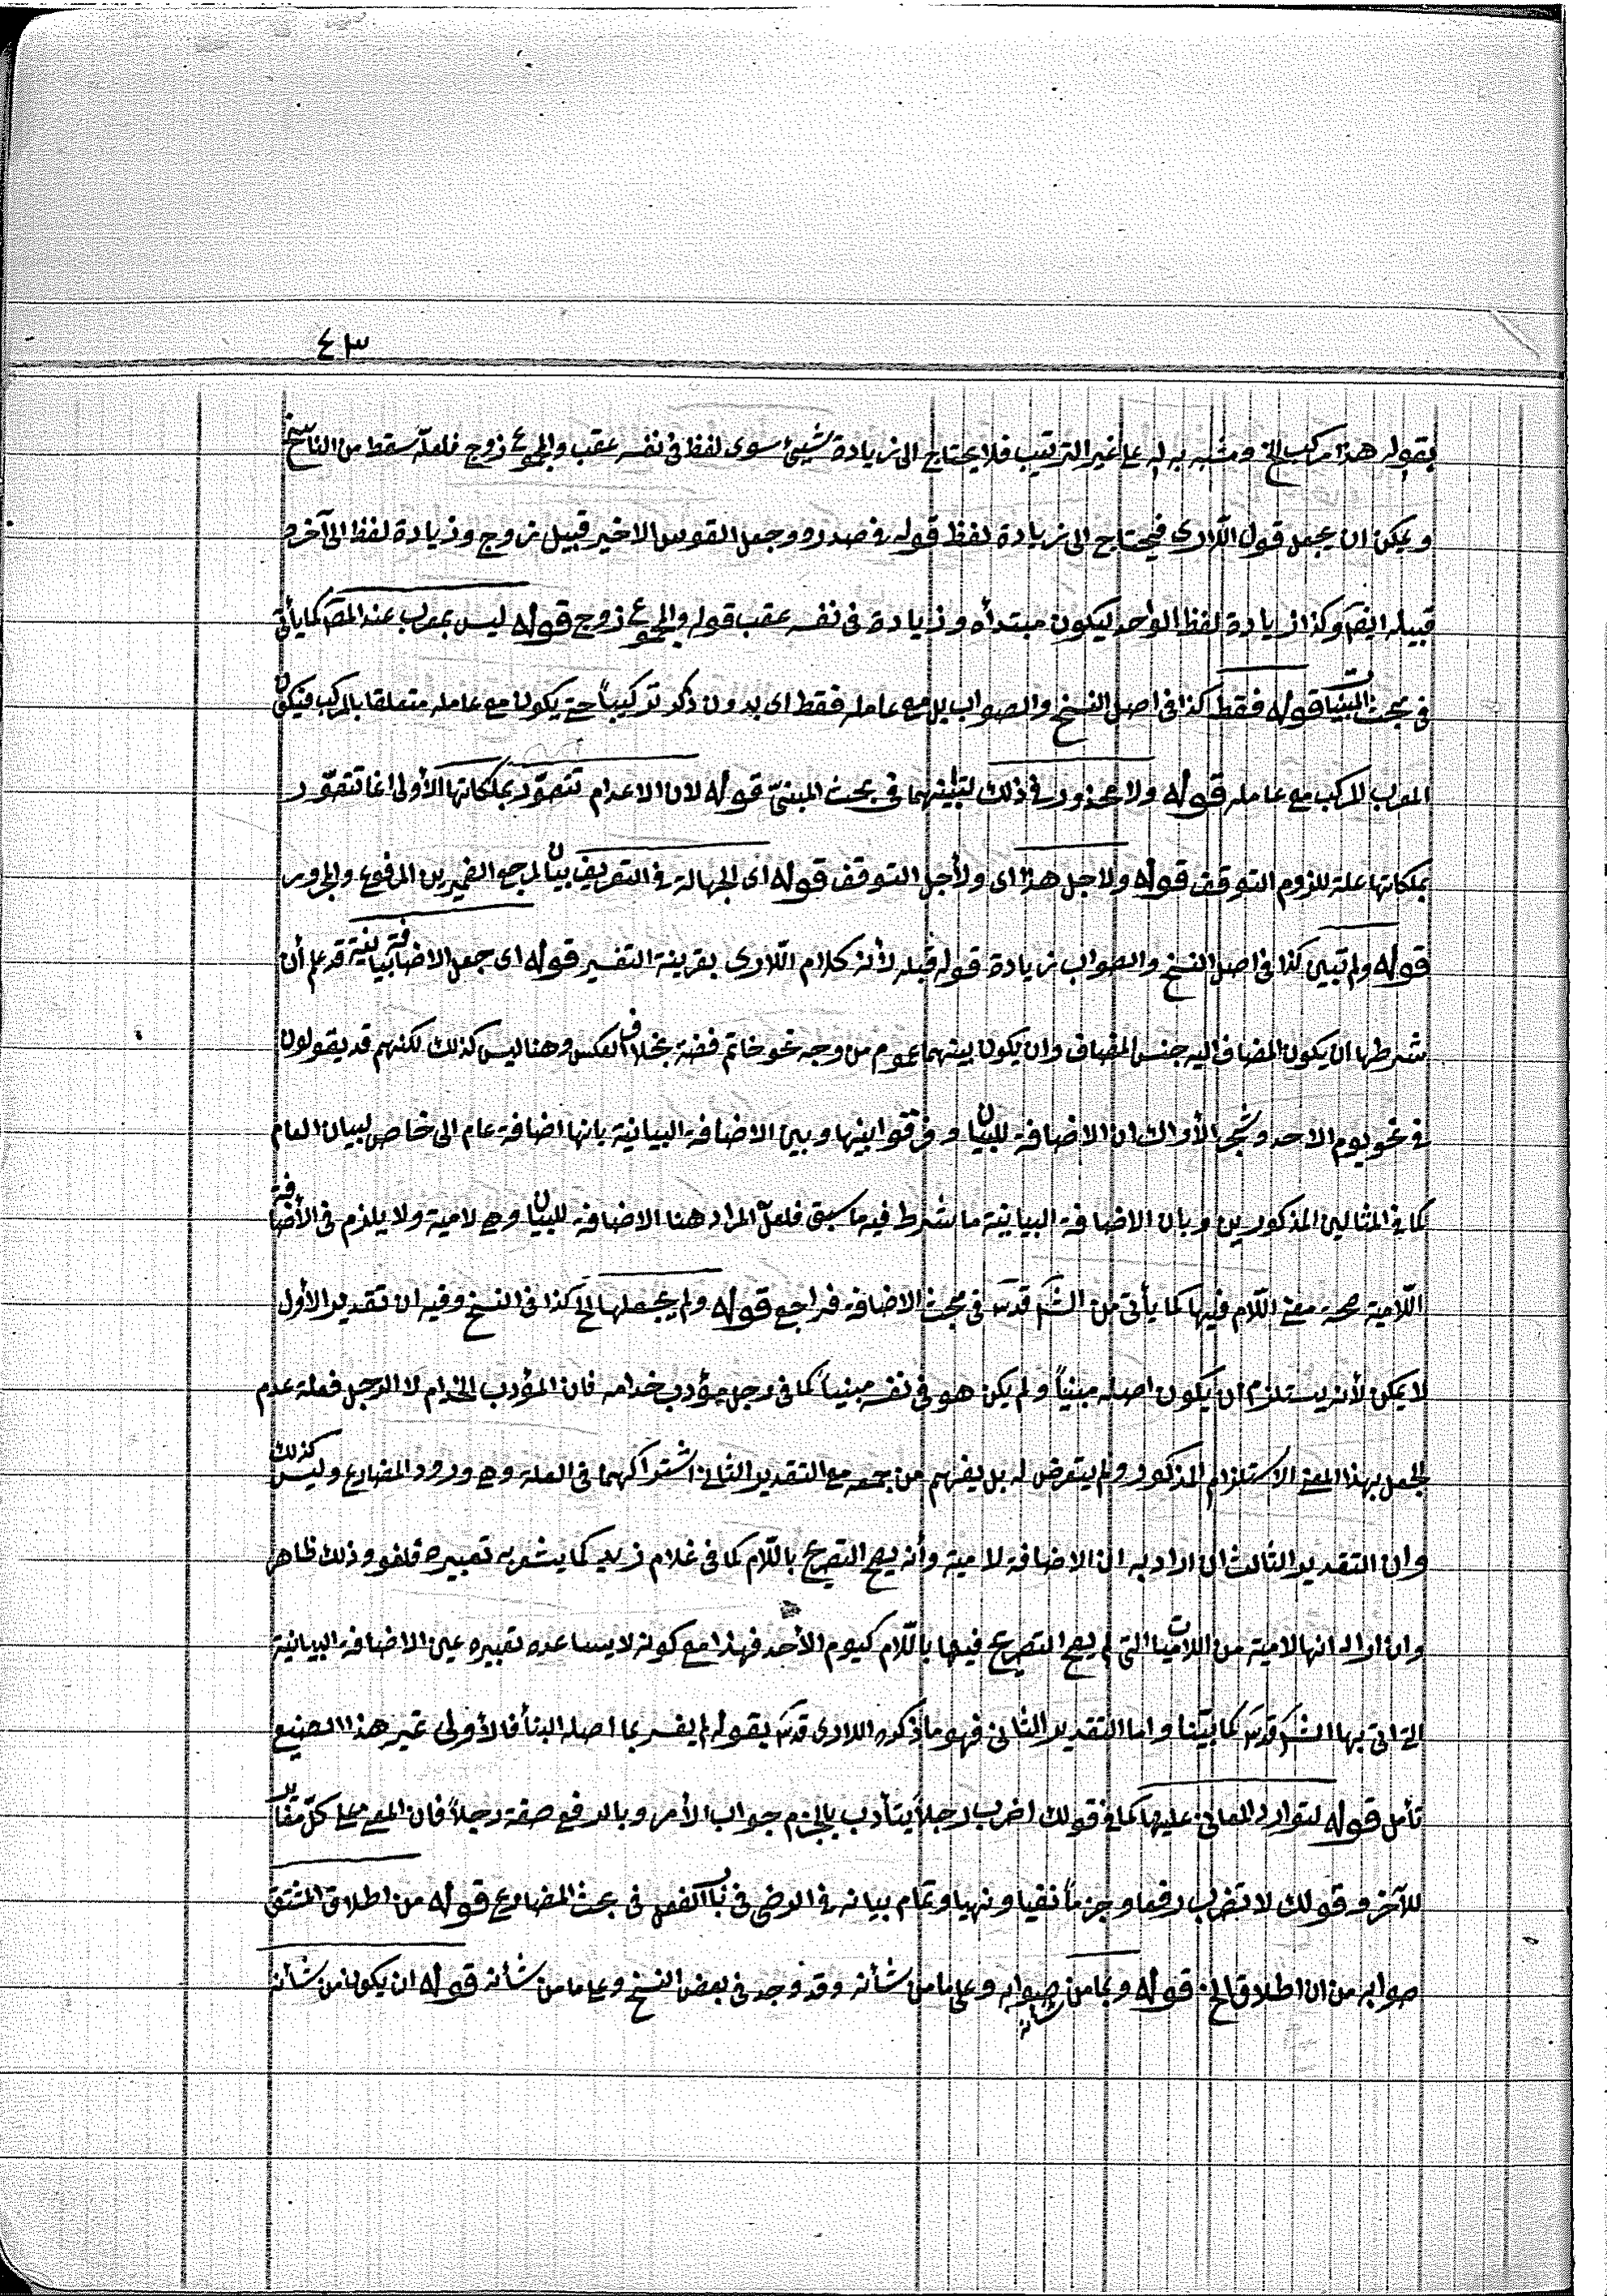 ٤٣
بقوله هذا مركب الخ ومشبه به له على غير الترتيب فلا يحتاج الى زيادة شيئ سوى لفظ فى نفسه عقب والمجموع زوج فلعله سقط من الناسخ
ويمكن ان يجعل قول اللارى فيحتاج الى زيادة لفظ قوله فى صدره وجعل القوس الاخير قبيل زوج وزيادة لفظ الى آخره
قبيله ايضا وكذا زيادة لفظ الواحد ليكون مبتدأه وزيادة فى نفسه عقب قوله والمجموع زوج قوله ليس بمعرب عند المصـ كما يأتى
فى بحث المبنيات قوله فقط كذا فى اصل النسخ والصواب بل مع عامله فقط اى بدون ذكر تركيباً حتى يكون مع عامله متعلقا بالمركب فيكون
المعرب المركب مع عامله قوله ولا محذور فى ذلك لتبيينهما فى بحث المبنىّ قوله لان الاعدام تتصوّر بملكاتها الأولى انما تتصوّر
بملكاتها علة للزوم التوقف قوله ولاجل هذا اى ولأجل التوقف قوله اى الجهالة فى التعريف بيان لمرجع الضميرين المرفوع والمجرور
قوله ولم تبيى كذا فى اصل النسخ والصواب زيادة قوله قبله لأنه كلام اللارى بقرينة التفسير قوله اى جعل الاضافة بيانية قد علم أن
شرطها ان يكون المضاف اليه جنس المضاف وان يكون بينهما عموم من وجه نحو خاتم فضة بخلاف العكس وهنا ليس كذلك لكنهم قد يقولون
فى نحو يوم الاحد وشجر الأراك ان الاضافة للبيان وفرقوا بينها وبين الاضافة البيانية بانها اضافة عام الى خاص لبيان العام
كما فى المثالين المذكورين وبان الاضافة البيانية ما شرط فيه ما سبق فلعلّ المراد هنا الاضافة للبيان وهى لامية ولا يلزم فى الأضافة
اللّامية صحة معنى اللّام فيها كما يأتى من الشـ قدس فى بحث الاضافة فراجع قوله ولم يجعلها الخ كذا فى النسخ وفيه ان تقدير الأول
لا يمكن لأنه يستلزم ان يكون اصله مبنياً ولم يكن هو فى نفسه مبنياً كما فى رجل مؤدب خدامه فان المؤدب الخدام لا الرجل فعلة عدم
الجعل بهذا المعنى الاستلزام المذكور ولم يتعرض له بل يفهم من جمعه مع التقدير الثانى اشتراكهما فى العلة وهى ورود المضارع وليس كذلك
وان التقدير الثالث ان اراد به ان الاضافة لامية وأنه يصح التصريح باللّام كما فى غلام زيد كما يشعر به تعبيره فلغو وذلك ظاهر
وان اراد انها لامية من اللاميات التى لم يصح التصريح فيها باللّام كيوم الأحد فهذا مع كونه لا يساعده تعبيره عين الاضافة البيانية
التى اتى بها الشـ قدس كما بيّنا واما التقدير الثانى فهو ما ذكره اللارى قدس بقوله لم يفسر بما اصله البنأ فالأولى غير هذا الصنيع
تأمل قوله لتوارد المعانى عليها كما فى قولك اضرب رجلاً يتأدب بالجزم جواب الأمر وبالرفع صفة رجلاً فان المعنى على كلّ مغاير
للآخر وقولك لا تضرب رفعا وجزماً نفيا ونهيا وتمام بيانه فى الرضى فى باب الفعل فى بحث المضارع قوله من اطلاق المشتق
صوابه من ان اطلاق الخ قوله وبما من شأنه صوابه وعلى ما من شأنه وقد وجد فى بعض النسخ وعلى ما من شأنه قوله ان يكون من شأنه